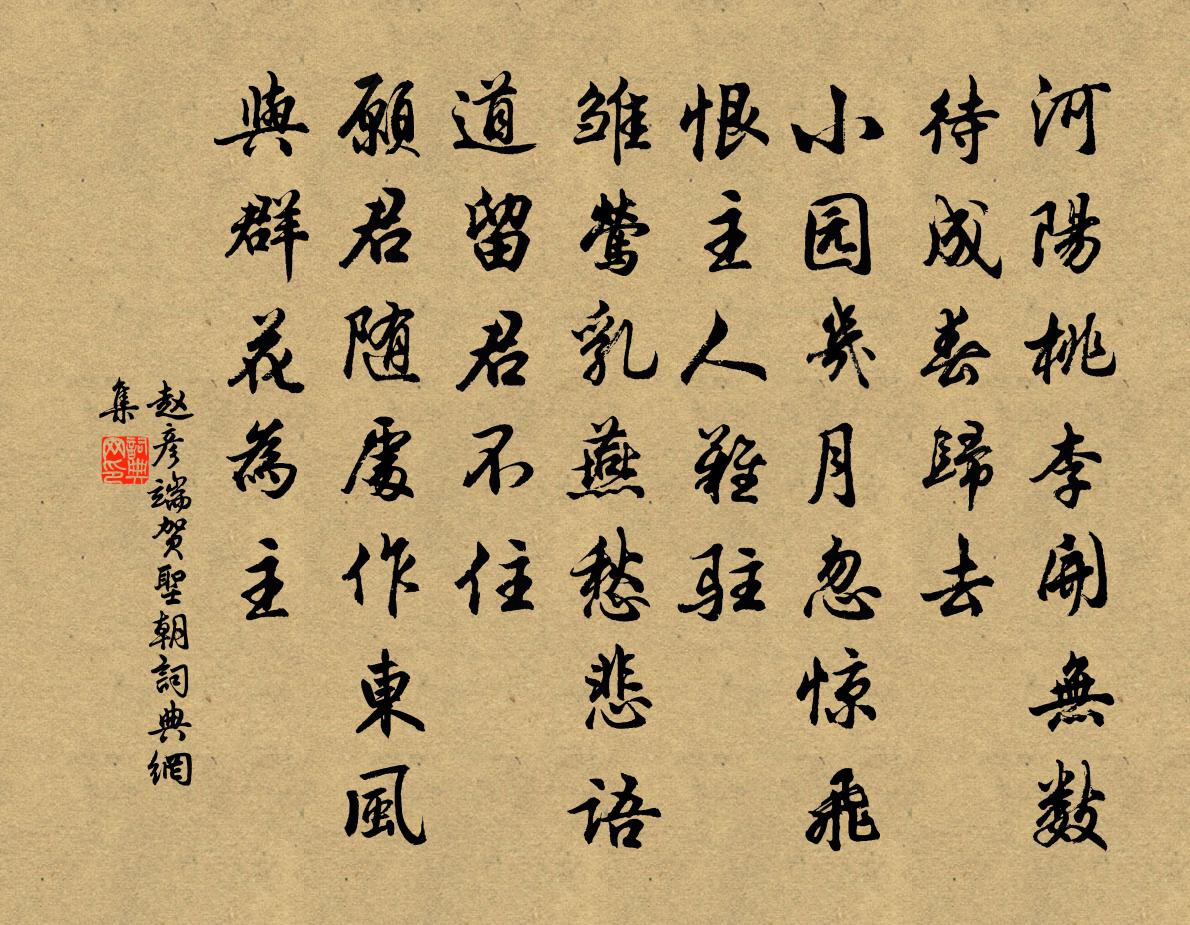 河陽桃李開無數
待成春歸去
小园幾月忽惊飛
恨主人難駐
雏莺乳燕愁悲語
道留君不住
願君随處作東風
與群花為主
赵彦端贺聖朝詞典網
集
詞典
网印